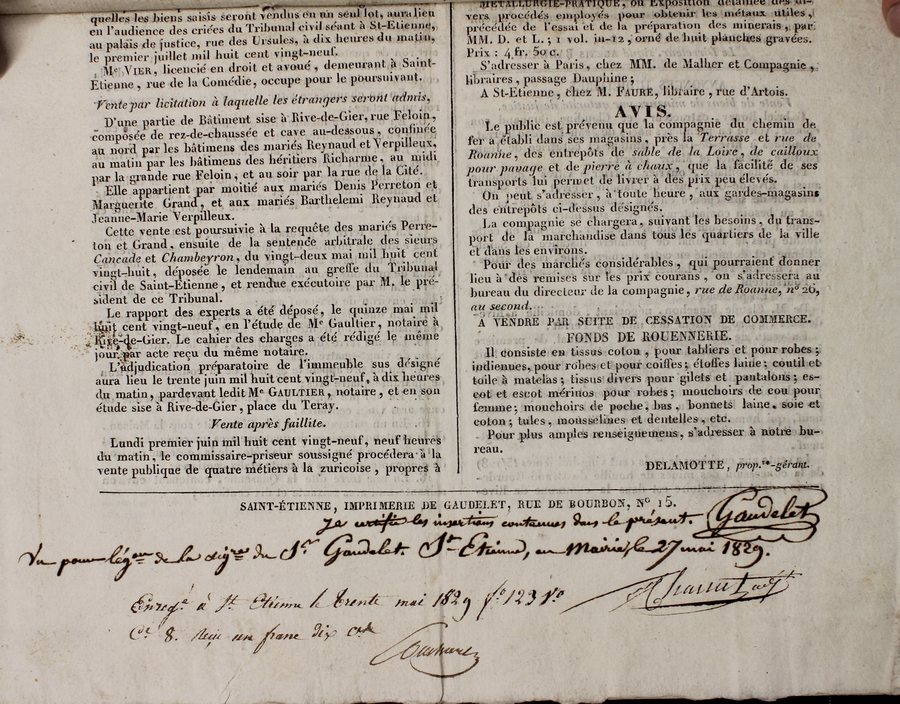 quelles les biens saisis seront vendus en un seul lot, aura lieu
en l'audience des criées du Tribunal civil séant à St-Etienne,
au palais de justice, rue des Ursules, à dix heures du matin,
le premier juillet mil huit cent vingt-neuf.
Me VIER, licencié en droit et avoué, demeurant à Saint-
Étienne, rue de la Comédie, occupe pour le poursuivant.
Vente par licitation à laquelle les étrangers seront admis,
D'une partie de Bâtiment sise à Rive-de-Gier, rue Feloin,
composée de rez-de-chaussée et cave au-dessous, confinée
au nord par les bâtimens des mariés Reynaud et Verpilleux,
au matin par les bâtimens des héritiers Richarme, au midi
par la grande rue Feloin, et au soir par la rue de la Cité.
Elle appartient par moitié aux mariés Denis Perreton et
Marguerite Grand, et aux mariés Barthelemi Reynaud et
Jeanne-Marie Verpilleux.
Cette vente est poursuivie à la requête des mariés Perre-
ton et Grand, ensuite de la sentence arbitrale des sieurs
Cancade et Chambeyron, du vingt-deux mai mil huit cent
vingt-huit, déposée le lendemain au greffe du Tribunal
civil de Saint-Étienne, et rendue exécutoire par M. le pré-
sident de ce Tribunal.
Le rapport des experts a été déposé, le quinze mai mil
huit cent vingt-neuf, en l'étude de Me Gaultier, notaire à
Rive-de-Gier. Le cahier des charges a été rédigé le même
jour par acte reçu du même notaire.
L'adjudication préparatoire de l'immeuble sus désigné
aura lieu le trente juin mil huit cent vingt-neuf, à dix heures
du matin, pardevant ledit Me GAULTIER, notaire, et en son
étude sise à Rive-de-Gier, place du Teray.
Vente après faillite.
Lundi premier juin mil huit cent vingt-neuf, neuf heures
du matin, le commissaire-priseur soussigné procédera à la
vente publique de quatre métiers à la zuricoise, propres à
METALLURGIE-PRATIQUE, ou Exposition détaillée des di-
vers procédés employés pour obtenir les métaux utiles,
précédée de l'essai et de la préparation des minerais, par
MM. D. et L.; 1 vol. in-12, orné de huit planches gravées.
Prix : 4 fr. 50 c.
S'adresser à Paris, chez MM. de Malher et Compagnie,
libraires, passage Dauphine;
A St-Etienne, chez M. FAURE, libraire, rue d'Artois.
AVIS.
Le public est prévenu que la compagnie du chemin de
fer a établi dans ses magasins, près la Terrasse et rue de
Roanne, des entrepôts de sable de la Loire, de cailloux
pour pavage et de pierre à chaux, que la facilité de ses
transports lui permet de livrer à des prix peu élevés.
On peut s'adresser, à toute heure, aux gardes-magasins
des entrepôts ci-dessus désignés.
La compagnie se chargera, suivant les besoins, du trans-
port de la marchandise dans tous les quartiers de la ville
et dans les environs.
Pour des marchés considérables, qui pourraient donner
lieu à des remises sur les prix courans, on s'adressera au
bureau du directeur de la compagnie, rue de Roanne, no 26,
au second.
A VENDRE PAR SUITE DE CESSATION DE COMMERCE.
FONDS DE ROUENNERIE.
Il consiste en tissus coton, pour tabliers et pour robes;
indiennes, pour robes et pour coiffes; étoffes laine; coutil et
toile à matelas; tissus divers pour gilets et pantalons; es-
cot et escot mérinos pour robes; mouchoirs de cou pour
femme; mouchoirs de poche, bas, bonnets laine, soie et
coton; tules, mousselines et dentelles, etc.
Pour plus amples renseignemens, s'adresser à notre bu-
reau.
DELAMOTTE, prop.re-gérant.
SAINT-ÉTIENNE, IMPRIMERIE DE GAUDELET, RUE DE BOURBON, No 15.
Je certifie les insertions contenues dans le présent. Gaudelet
Vu pour légon de la signre du Sr Gaudelet. St-Etienne, en Mairie, le 27 mai 1829.
Enregé à St Etienne le trente mai 1829 fo 123 Vo
Ce 8. Reçu un franc dix